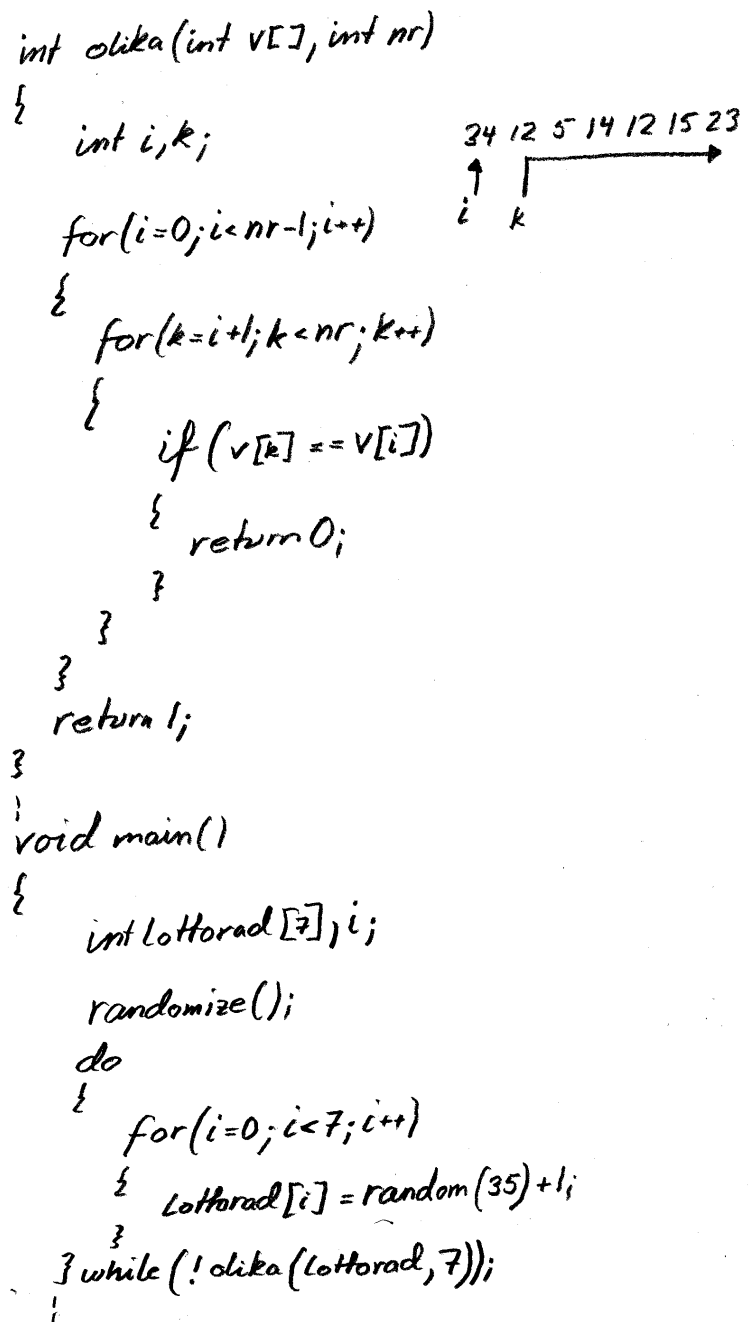 int olika(int v[], int nr)
{
int i,k;
34 12 5 14 12 15 23
i k
for(i=0;i<nr-1;i++)
{
for(k=i+1;k<nr;k++)
{
if(v[k]==v[i])
{
return 0;
}
}
}
return 1;
}
void main()
{
int Lottorad[7],i;
randomize();
do
{
for(i=0;i<7;i++)
{ Lottorad[i]=random(35)+1;
}
}while(!olika(Lottorad,7));